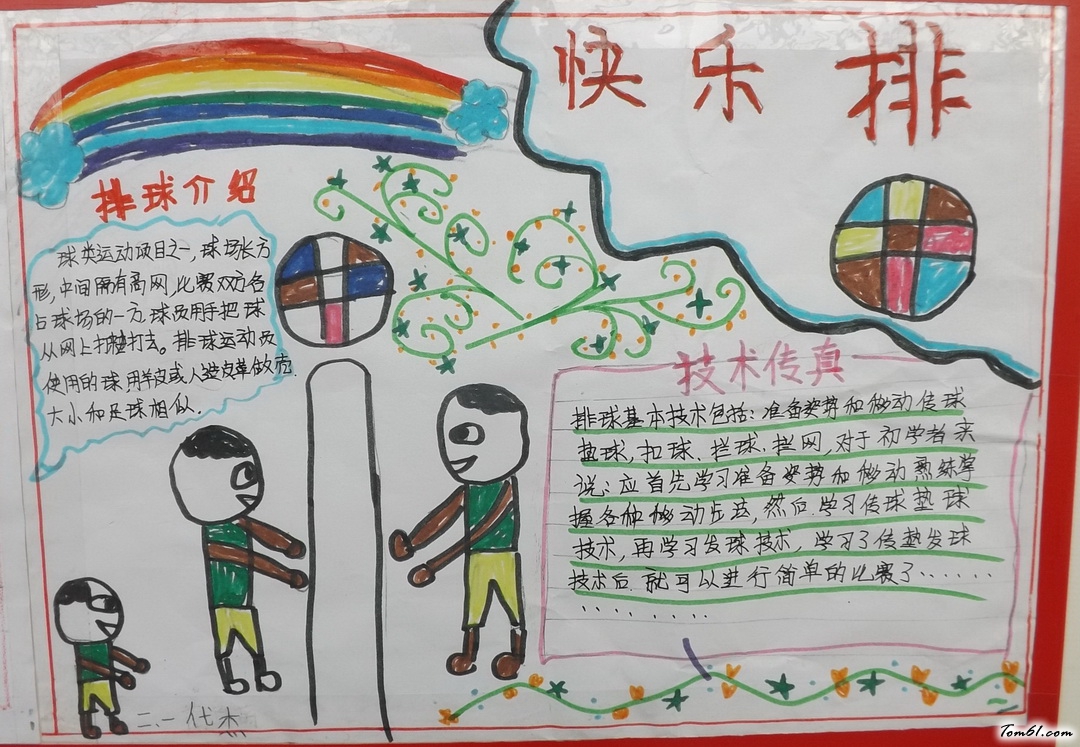 快乐排
排球介绍
球类运动项目之一,球场长方
形,中间隔有高网,比赛双方各
占球场的一方,球员用手把球
从网上打打去。排球运动员
使用的球用羊皮或人造皮革做壳.
大小和足球相似.
技术传真
排球基本技术包括:准备姿势和移动传球
垫球,扣球、拦球、拦网,对于初学者来
说:应首先学习准备姿势和移动熟练掌
握各种移动步法,然后学习传球垫球
技术,再学习发球技术,学习了传垫发球
技术后.就可以进行简单的比赛了......
二.一代杰
Tom61.com